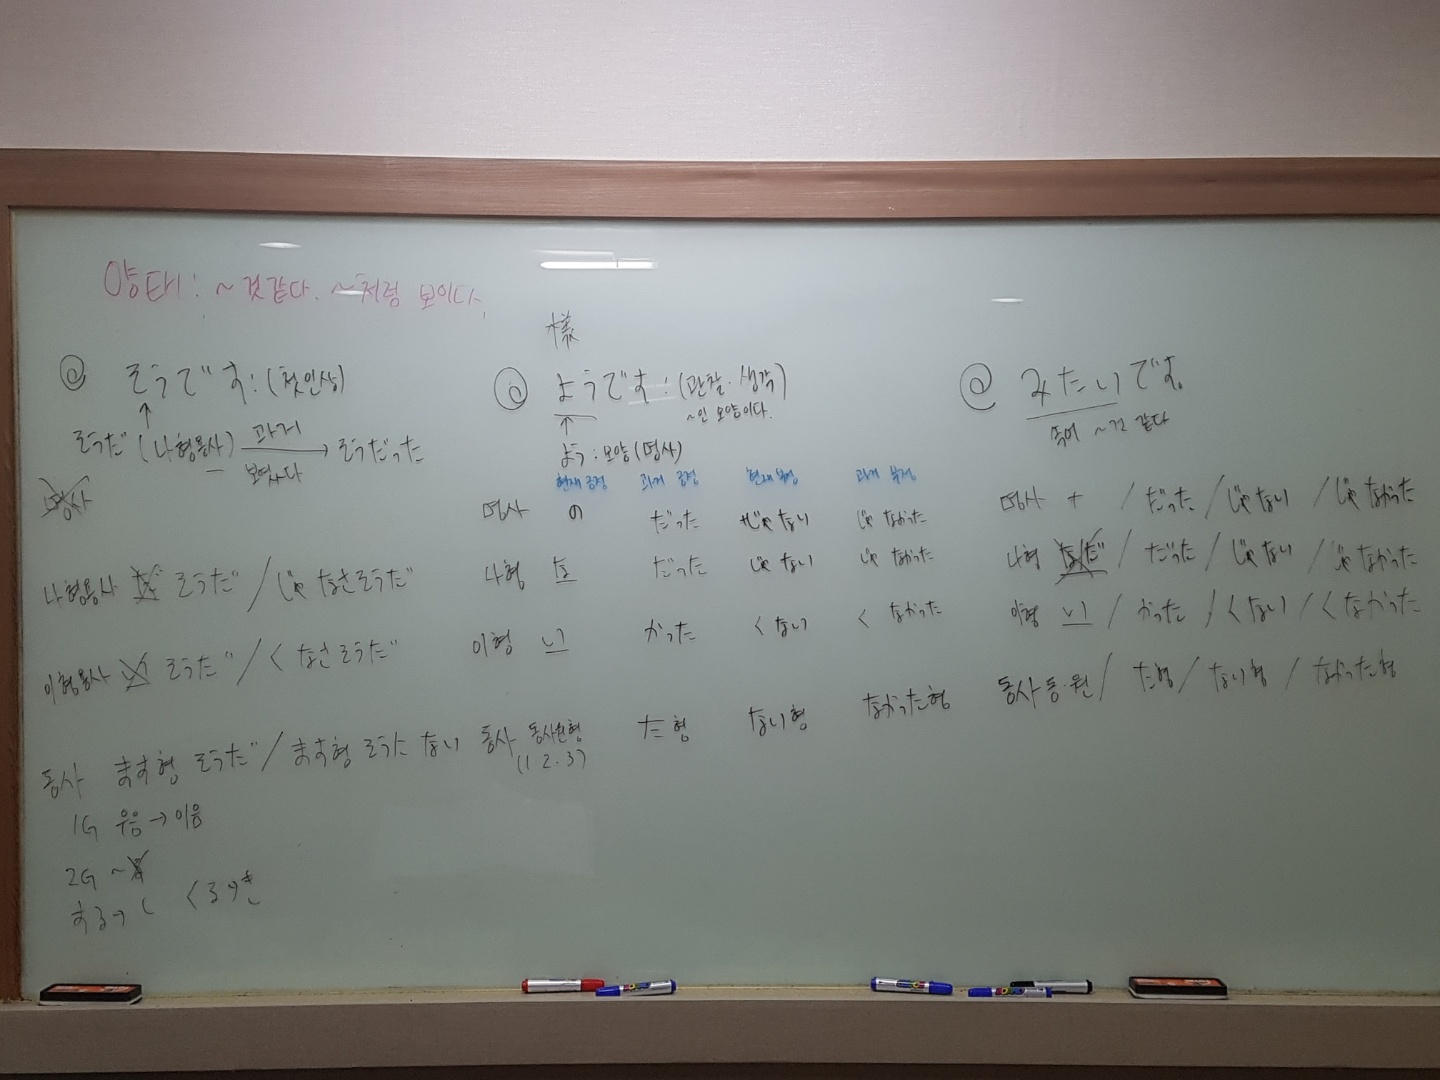 양태: ~것같다. ~처럼 보이다.
@ そうです: (첫인상)
↑
そうだ (나형용사) 과거 → そうだった
보였다
명사
나형용사 だ そうだ / じゃ なさそうだ
이형용사 い そうだ / く なさそうだ
동사 ます형 そうだ / ます형 そうに ない
1G 우음 → 이음
2G ~る
する→し くる→き
様
@ ようです: (관찰. 생각)
~인 모양이다.
↑
よう: 모양 (명사)
현재 긍정 과거 긍정 현재 부정 과거 부정
명사 の だった じゃ ない じゃ なかった
나형 な だった じゃ ない じゃ なかった
이형 い かった く ない く なかった
동사 동사원형 た형 ない형 なかった형
(1 2.3)
@ みたいです。
~것 같다
명사 + / だった / じゃ ない / じゃ なかった
나형 なだ / だった / じゃ ない / じゃ なかった
이형 い / かった / く ない / く なかった
동사 동.원 / た형 / ない형 / なかった형